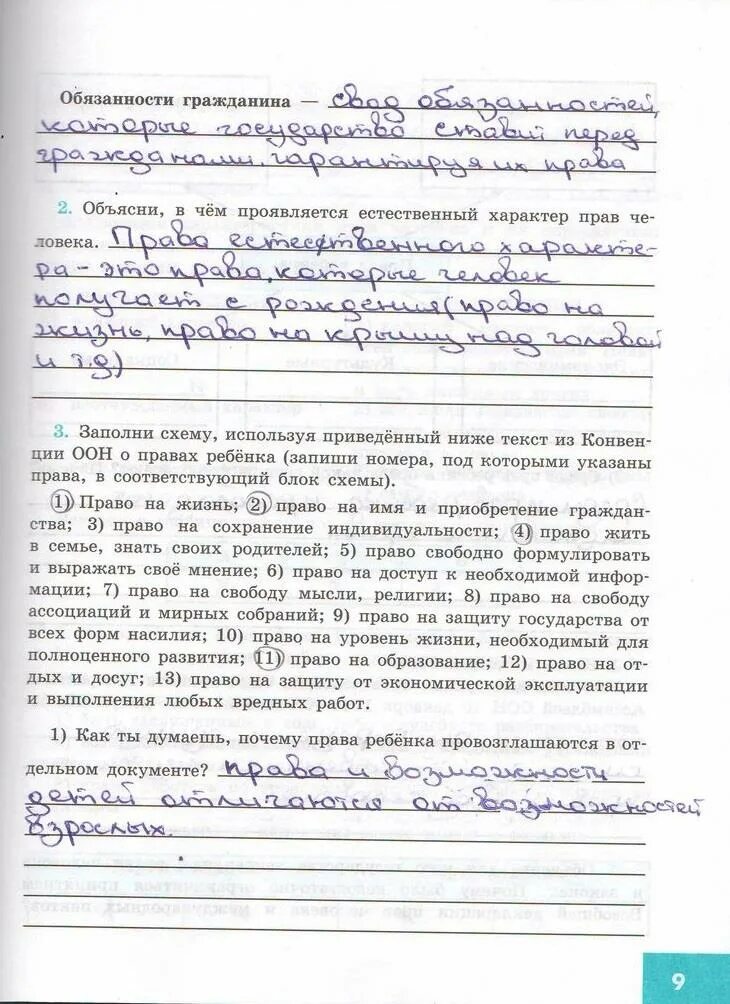 Обязанности гражданина — свод обязанностей,
которые государство ставит перед
гражданами, гарантируя их права
2. Объясни, в чём проявляется естественный характер прав че-
ловека. Права естественного характе-
ра - это права, которые человек
получает с рождения (право на
жизнь, право на крышу над головой
и т.д.)
3. Заполни схему, используя приведённый ниже текст из Конвен-
ции ООН о правах ребёнка (запиши номера, под которыми указаны
права, в соответствующий блок схемы).
1) Право на жизнь; 2) право на имя и приобретение граждан-
ства; 3) право на сохранение индивидуальности; 4) право жить
в семье, знать своих родителей; 5) право свободно формулировать
и выражать своё мнение; 6) право на доступ к необходимой инфор-
мации; 7) право на свободу мысли, религии; 8) право на свободу
ассоциаций и мирных собраний; 9) право на защиту государства от
всех форм насилия; 10) право на уровень жизни, необходимый для
полноценного развития; 11) право на образование; 12) право на от-
дых и досуг; 13) право на защиту от экономической эксплуатации
и выполнения любых вредных работ.
1) Как ты думаешь, почему права ребёнка провозглашаются в от-
дельном документе? права и возможности
детей отличаются от возможностей
взрослых.
9